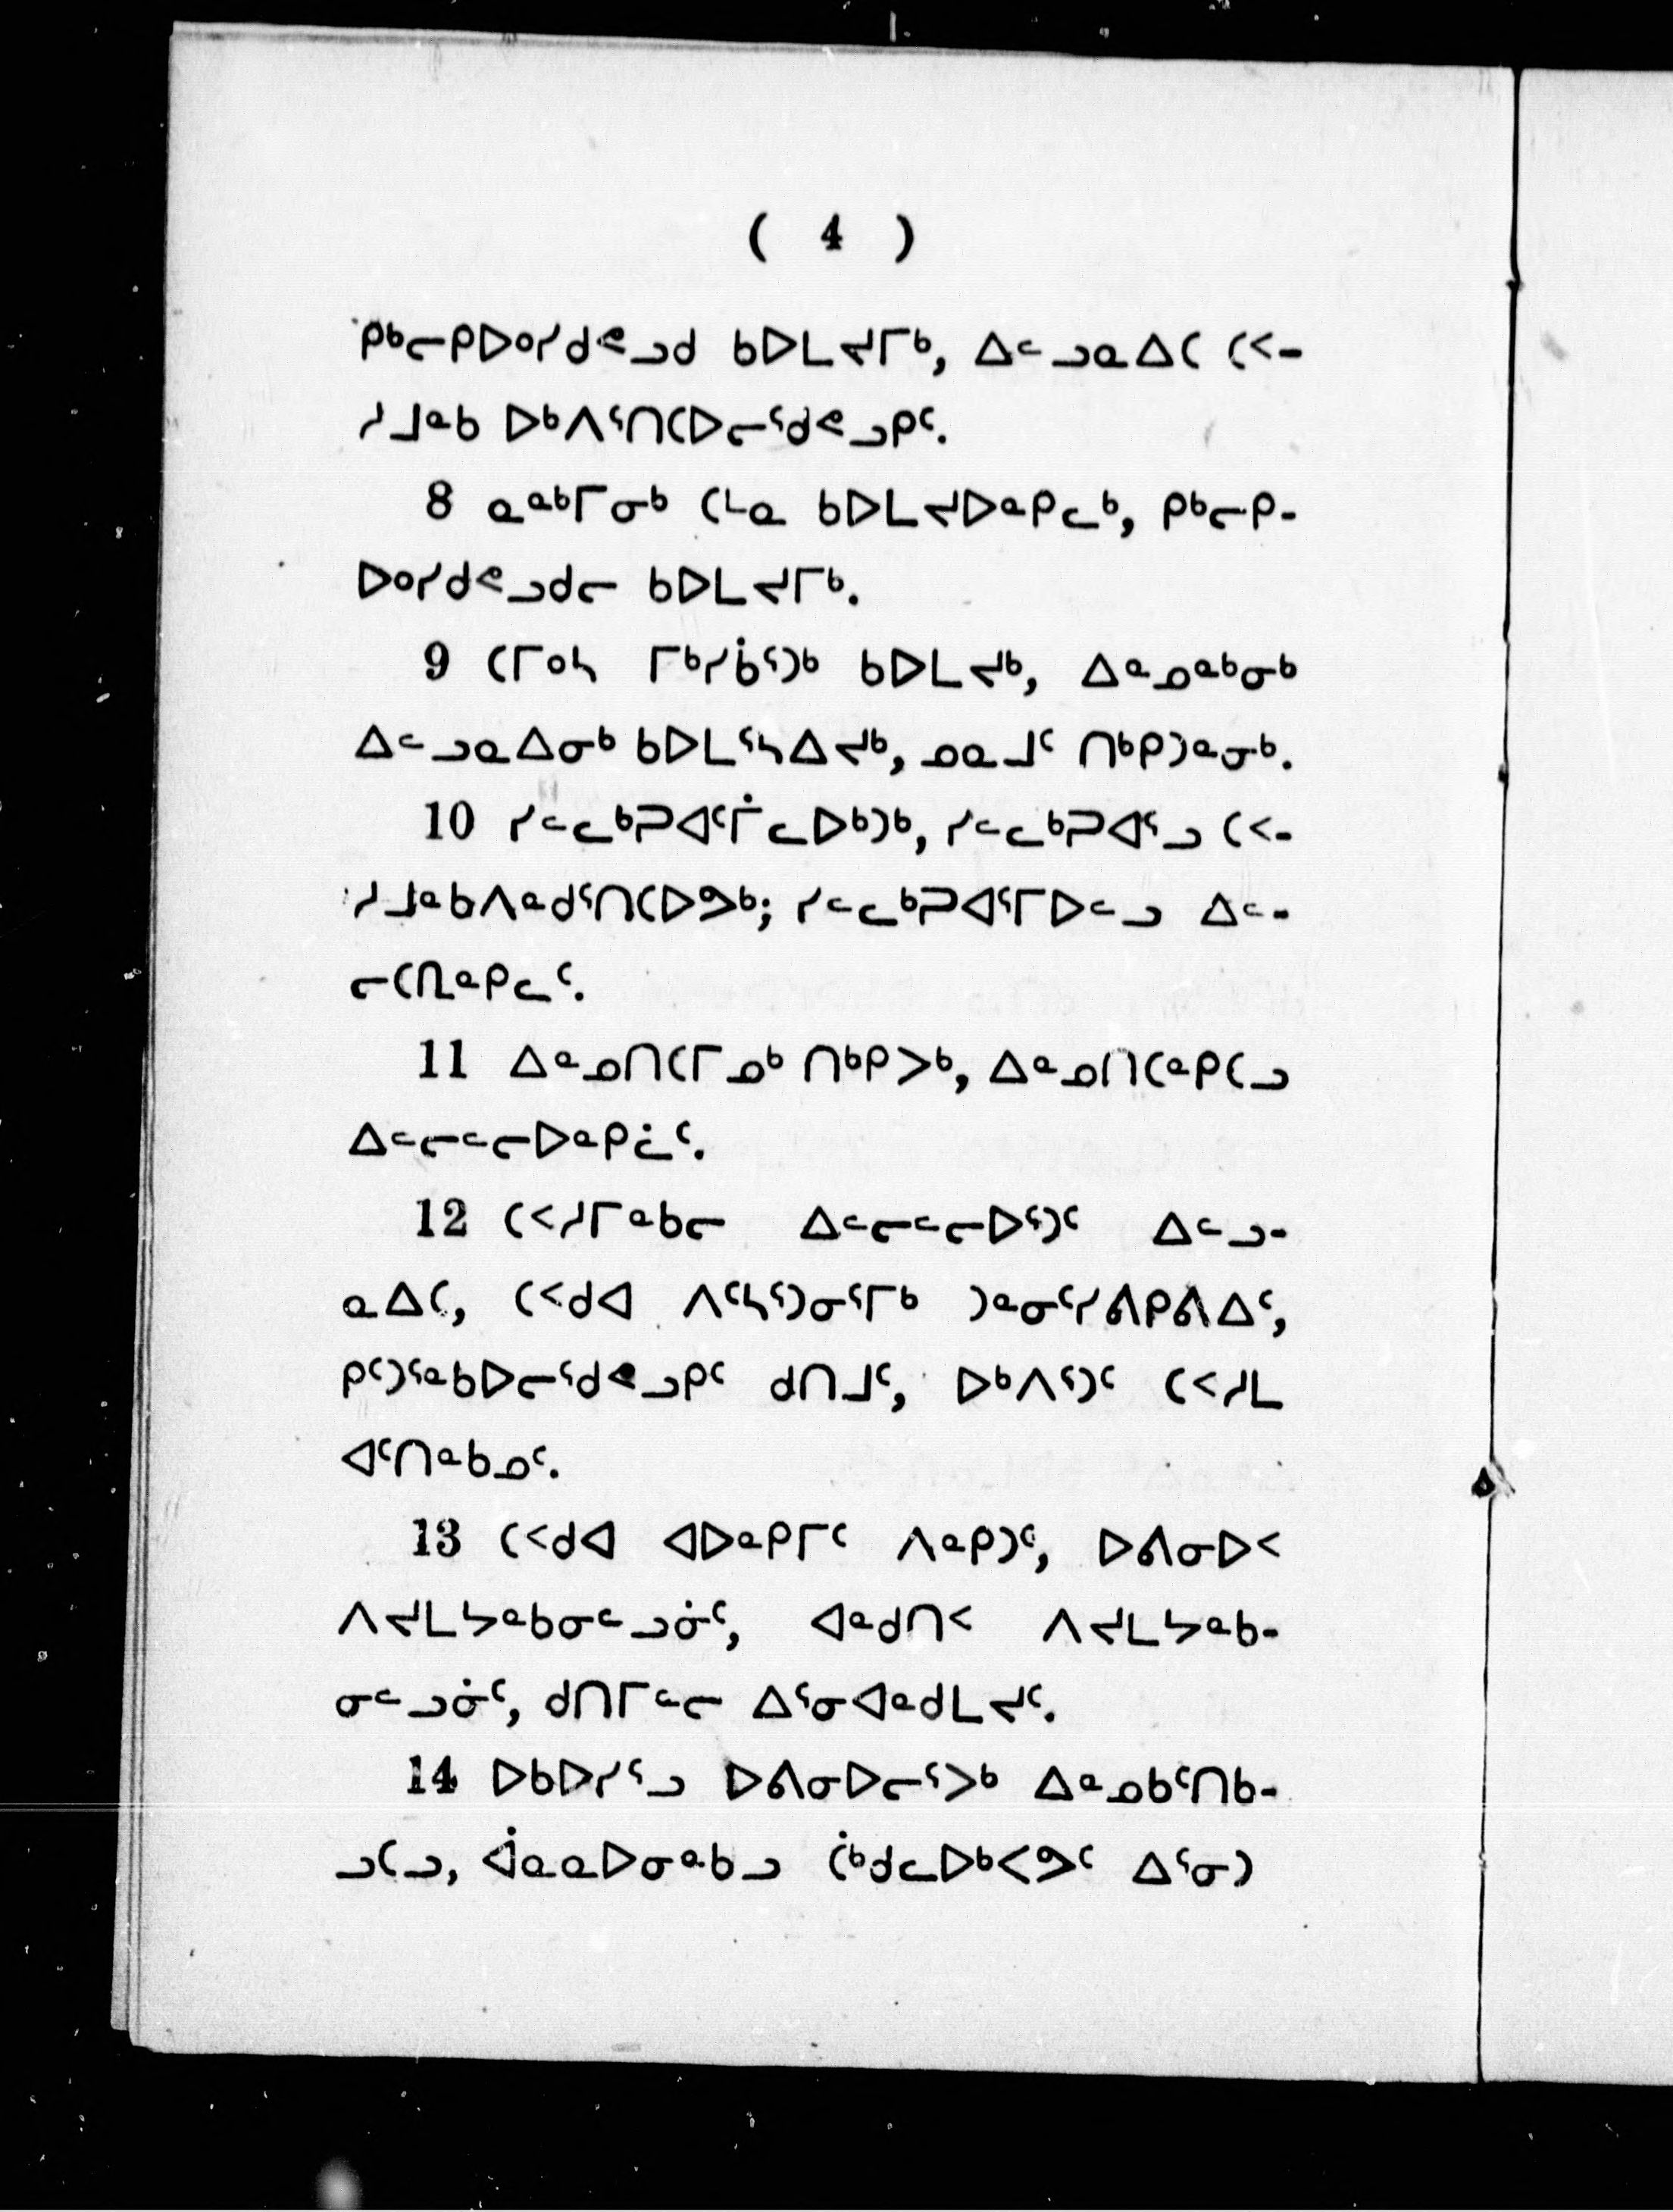 ( 4 )
ᑭᒃᓕᑭᐅᓄᓯᑯᕙᓗᑯ ᑲᐅᒪᔪᒥᒃ, ᐃᓪᓗᓇᐃᑕ ᑕᐸ-
ᓱᒧᓐᑲ ᐅᒃᐱᕐᑎᑕᐅᓕᕐᑯᕙᓗᑭᑦ.
8 ᓇᓐᒃᒥᓂᒃ ᑕᒻᓇ ᑲᐅᒪᔪᐅᓐᑭᓚᒃ, ᑭᒃᓕᑭ-
ᐅᓄᓯᑯᕙᓗᑯᓕ ᑲᐅᒪᔪᒥᒃ.
9 ᑕᒥᓄᓴ ᒥᒃᓯᑳᕐᑐᒃ ᑲᐅᒪᔪᒃ, ᐃᓐᓄᓐᒃᓂᒃ
ᐃᓪᓗᓇᐃᓂᒃ ᑲᐅᒪᕐᓴᐃᔪᒃ, ᓄᓇᒧᑦ ᑎᒃᑭᑐᓐᓂᒃ.
10 ᓯᓪᓚᒃᑐᐊᑦᒦᓚᐅᒃᑐᒃ, ᓯᓪᓚᒃᑐᐊᕐᓗ ᑕᐸ-
ᓱᒧᓐᑲᐱᓐᑯᕐᑎᑕᐅᕗᒃ; ᓯᓪᓚᒃᑐᐊᕐᒥᐅᓪᓗ ᐃᓪ-
ᓕᑕᕆᓐᑭᓚᑦ.
11 ᐃᓐᓄᑎᑕᒥᓄᒃ ᑎᒃᑭᐳᒃ, ᐃᓐᓄᑎᑕᓐᑭᑕᓗ
ᐃᓪᓕᓪᓕᐅᓐᑭᓛᑦ.
12 ᑕᐸᓱᒥᓐᑲᓕ ᐃᓪᓕᓪᓕᐅᕐᑐᑦ ᐃᓪᓗ-
ᓇᐃᑕ, ᑕᐸᑯᐊ ᐱᑦᓴᕐᑐᓂᕐᒥᒃ ᑐᓐᓂᑦᓯᕕᑭᕕᐃᑦ,
ᑭᑦᑐᕐᓐᑲᐅᓕᕐᑯᕙᓗᑭᑦ ᑯᑎᒧᑦ, ᐅᒃᐱᕐᑐᑦ ᑕᐸᓱᒪ
ᐊᑦᑎᓐᑲᓄᑦ.
13 ᑕᐸᑯᐊ ᐊᐅᓐᑭᒥᑦ ᐱᓐᑭᑐᑦ, ᐅᕕᓂᐅᐸ
ᐱᔪᒪᔭᓐᑲᓂᓪᓘᓃᑦ, ᐊᓐᑯᑎᐸ ᐱᔪᒪᔭᓐᑲ-
ᓂᓪᓘᓃᑦ, ᑯᑎᒥᓪᓕ ᐃᕐᓂᐊᓐᑯᒪᔪᑦ.
14 ᐅᑲᐅᓯᕐᓗ ᐅᕕᓂᐅᓕᕐᐳᒃ ᐃᓐᓄᑲᑦᑎᑲ-
ᓗᑕᓗ, ᐋᓇᓇᐅᓂᓐᑲᓗ ᑖᒃᑯᓚᐅᒃᐸᕗᑦ ᐃᕐᓂᑐ